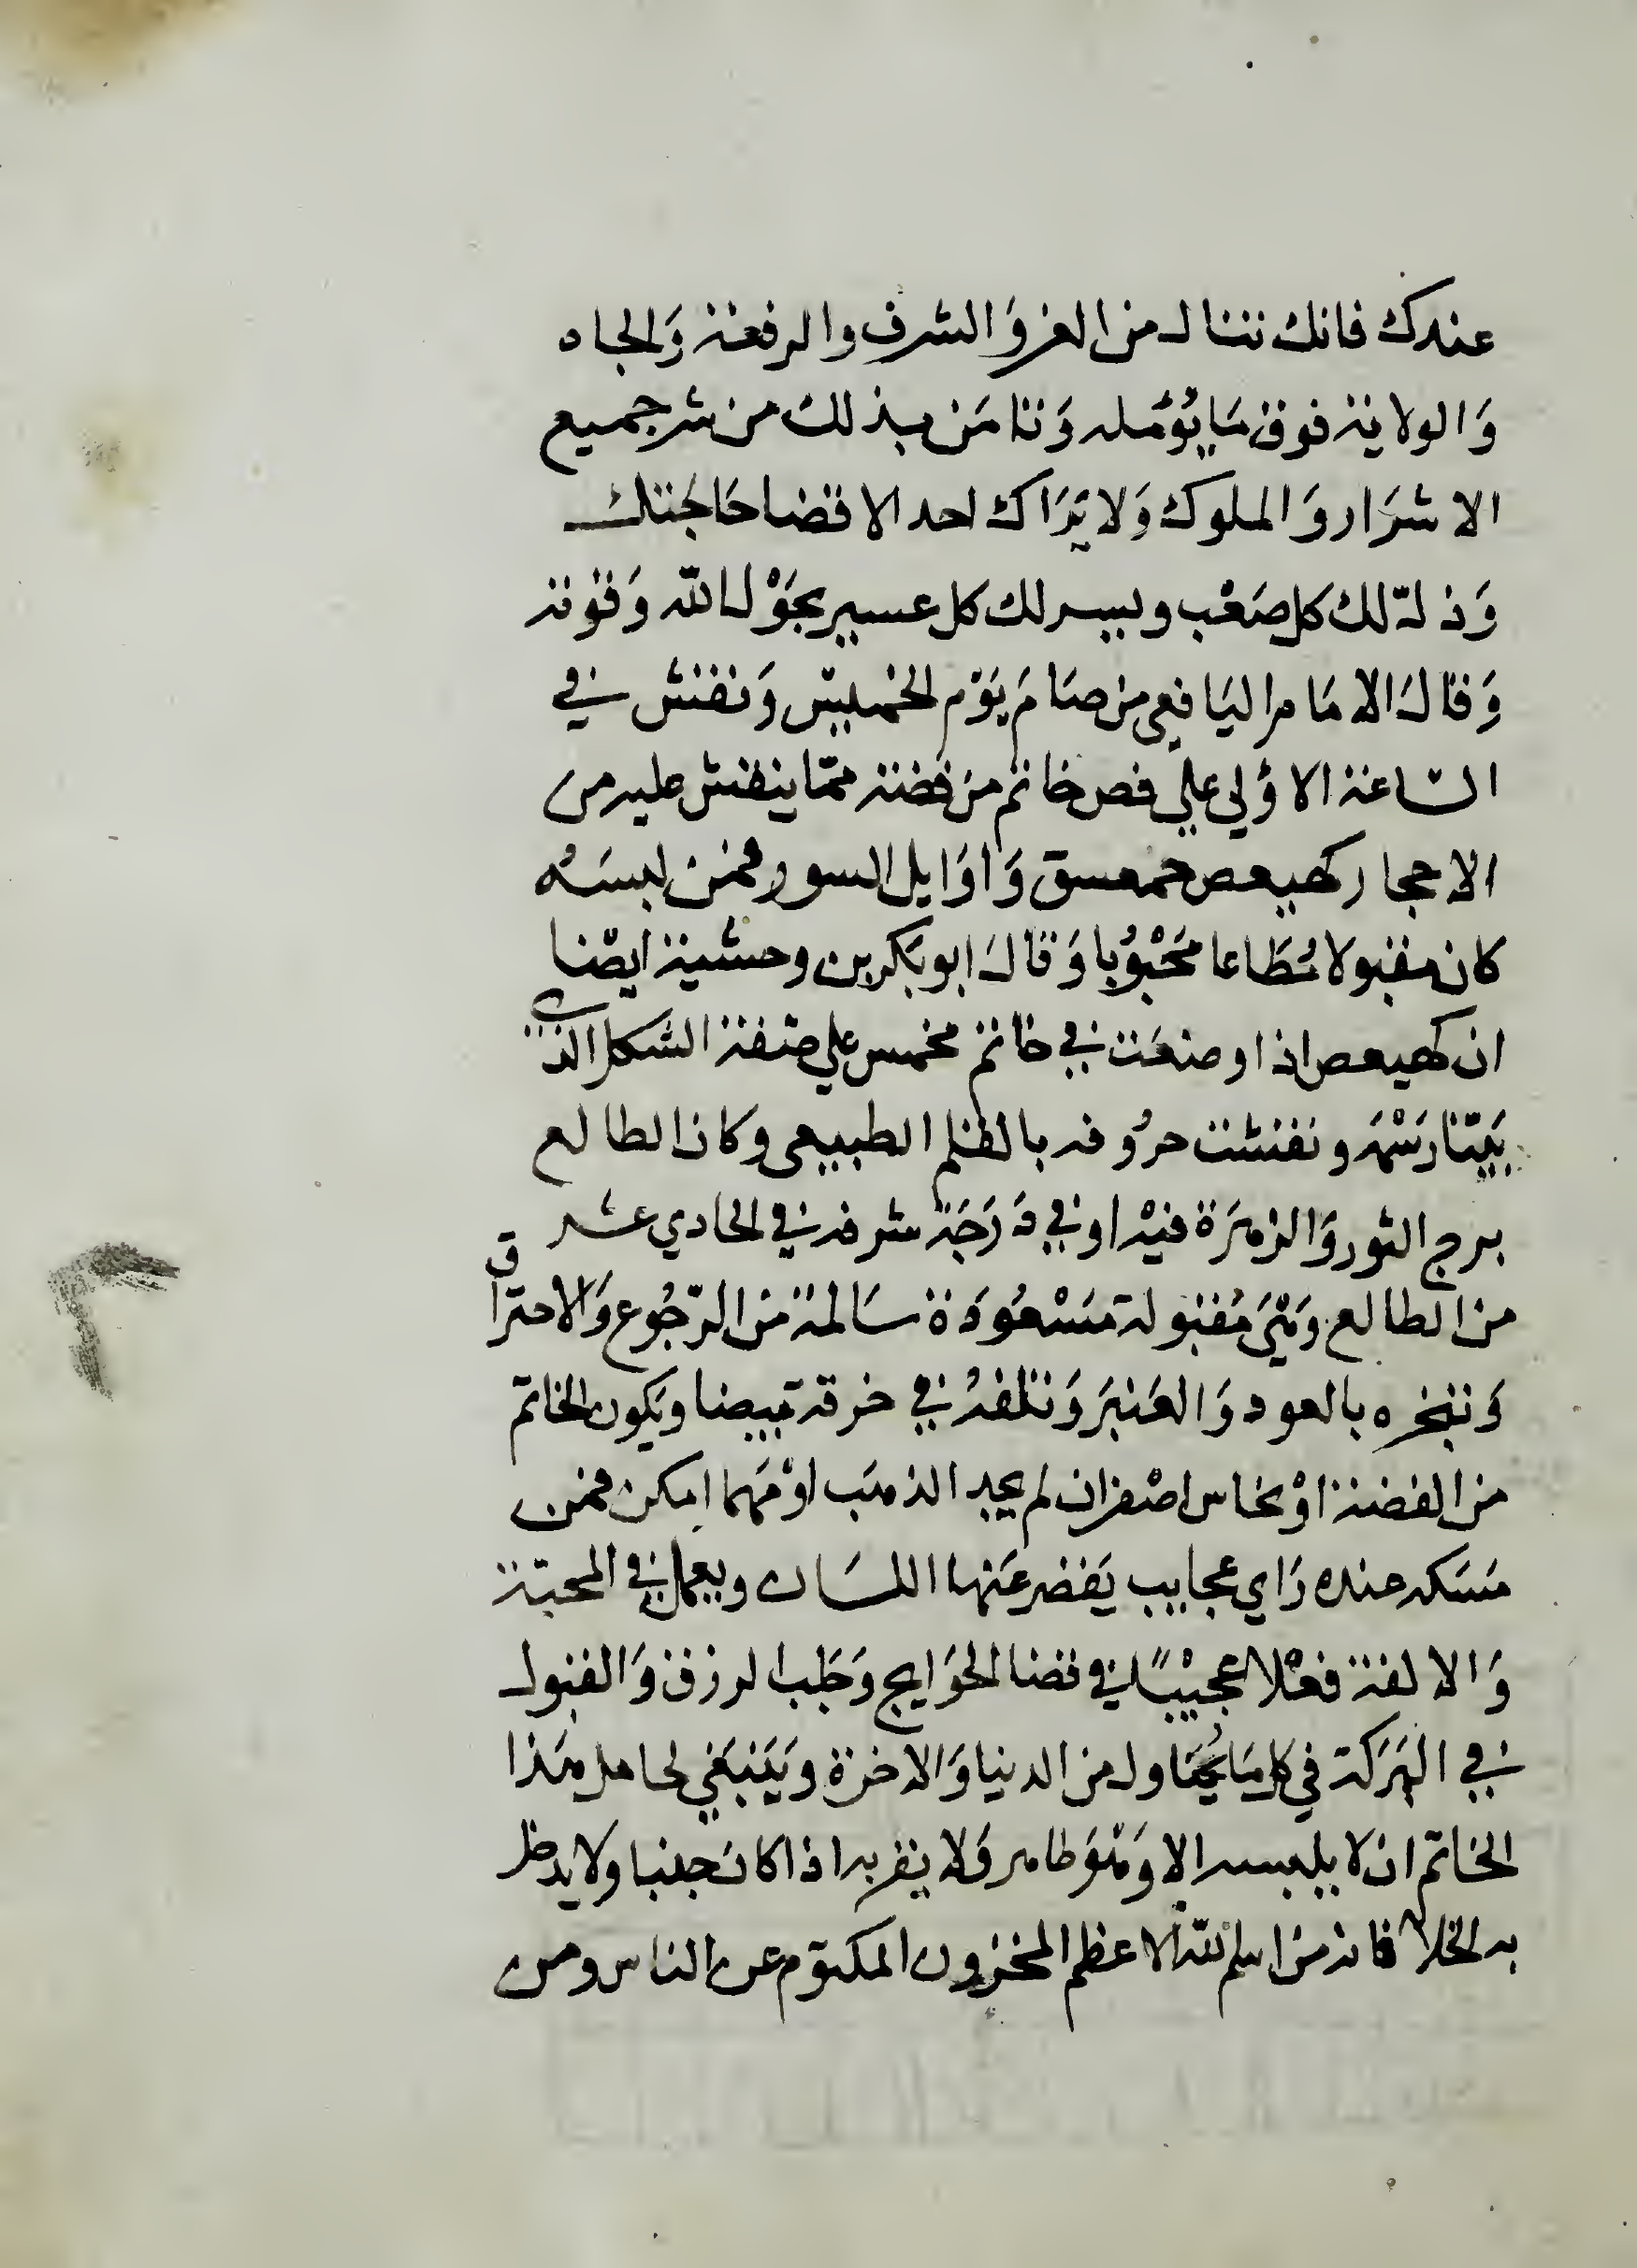 عندك فانك تنال من العز وَالشرف والرفعة وَالجاه
وَالولاية فوق مَا يُؤمّله وَتامَن بذلك من شر جميع
الاشرَار وَالملوك وَلا يَرَاك احد الا قضا حَاجَتك
وَذلّ لك كل صَعْب ويسر لك كل عسير بحَوْل الله وَقوته
وَقالَ الامَام اليَافعي من صَامَ يَوْم الخميس وَنقش في
السّاعة الاوُلي علي فص خاتم من فضة ممّا ينقش عليه من
الاحجار كهيعص حمعسق وَاوَايل السور فمن لبسَه
كان مقبولا مُطَاعا محْبُوبا وَقالَ ابو بَكر بن وحشية ايضا
ان كهيعص اذا وضعَت في خاتم مخمس علي صفة الشكل الذي
بَيّنا رَسْمَه ونقشت حرُوفه بالقلم الطبيعى وكان الطالع
برج الثور وَالزهَرَة فيْه او في دَرَجَة شرفه في الحادي عشر
من الطالع وَهْيَ مُقبولة مَسْعُودَة سَالمة من الرّجُوع وَالاحتراق
وَتبخره بالعود وَالعَنبَر وَتلفهُ في خرقة بَيضا ويَكون الخاتم
من الفضة اوْ نحاس اصْفر ان لم يجد الذهَب اوْ مَهما امكن فمن
مَسَكه عنده رَاي عجايب يَقصر عَنها اللسَان ويعمل في المحبّة
وَالالفة فعْلا عجيْبًا في قضا الحوَايج وَطَلب الرزق وَالقبول
في البَرَكة في كل مَا يُحَاول من الدنيا وَالاخرَة ويَنبَغي لحامل هَذا
الخاتم ان لا يلبسه الا وَهْوَ طاهر وَلا يقربه اذا كان جنبا ولا يدخل
به الخلا فانه من اسم الله الاعظم المخزون المكتوم عن الناس ومن